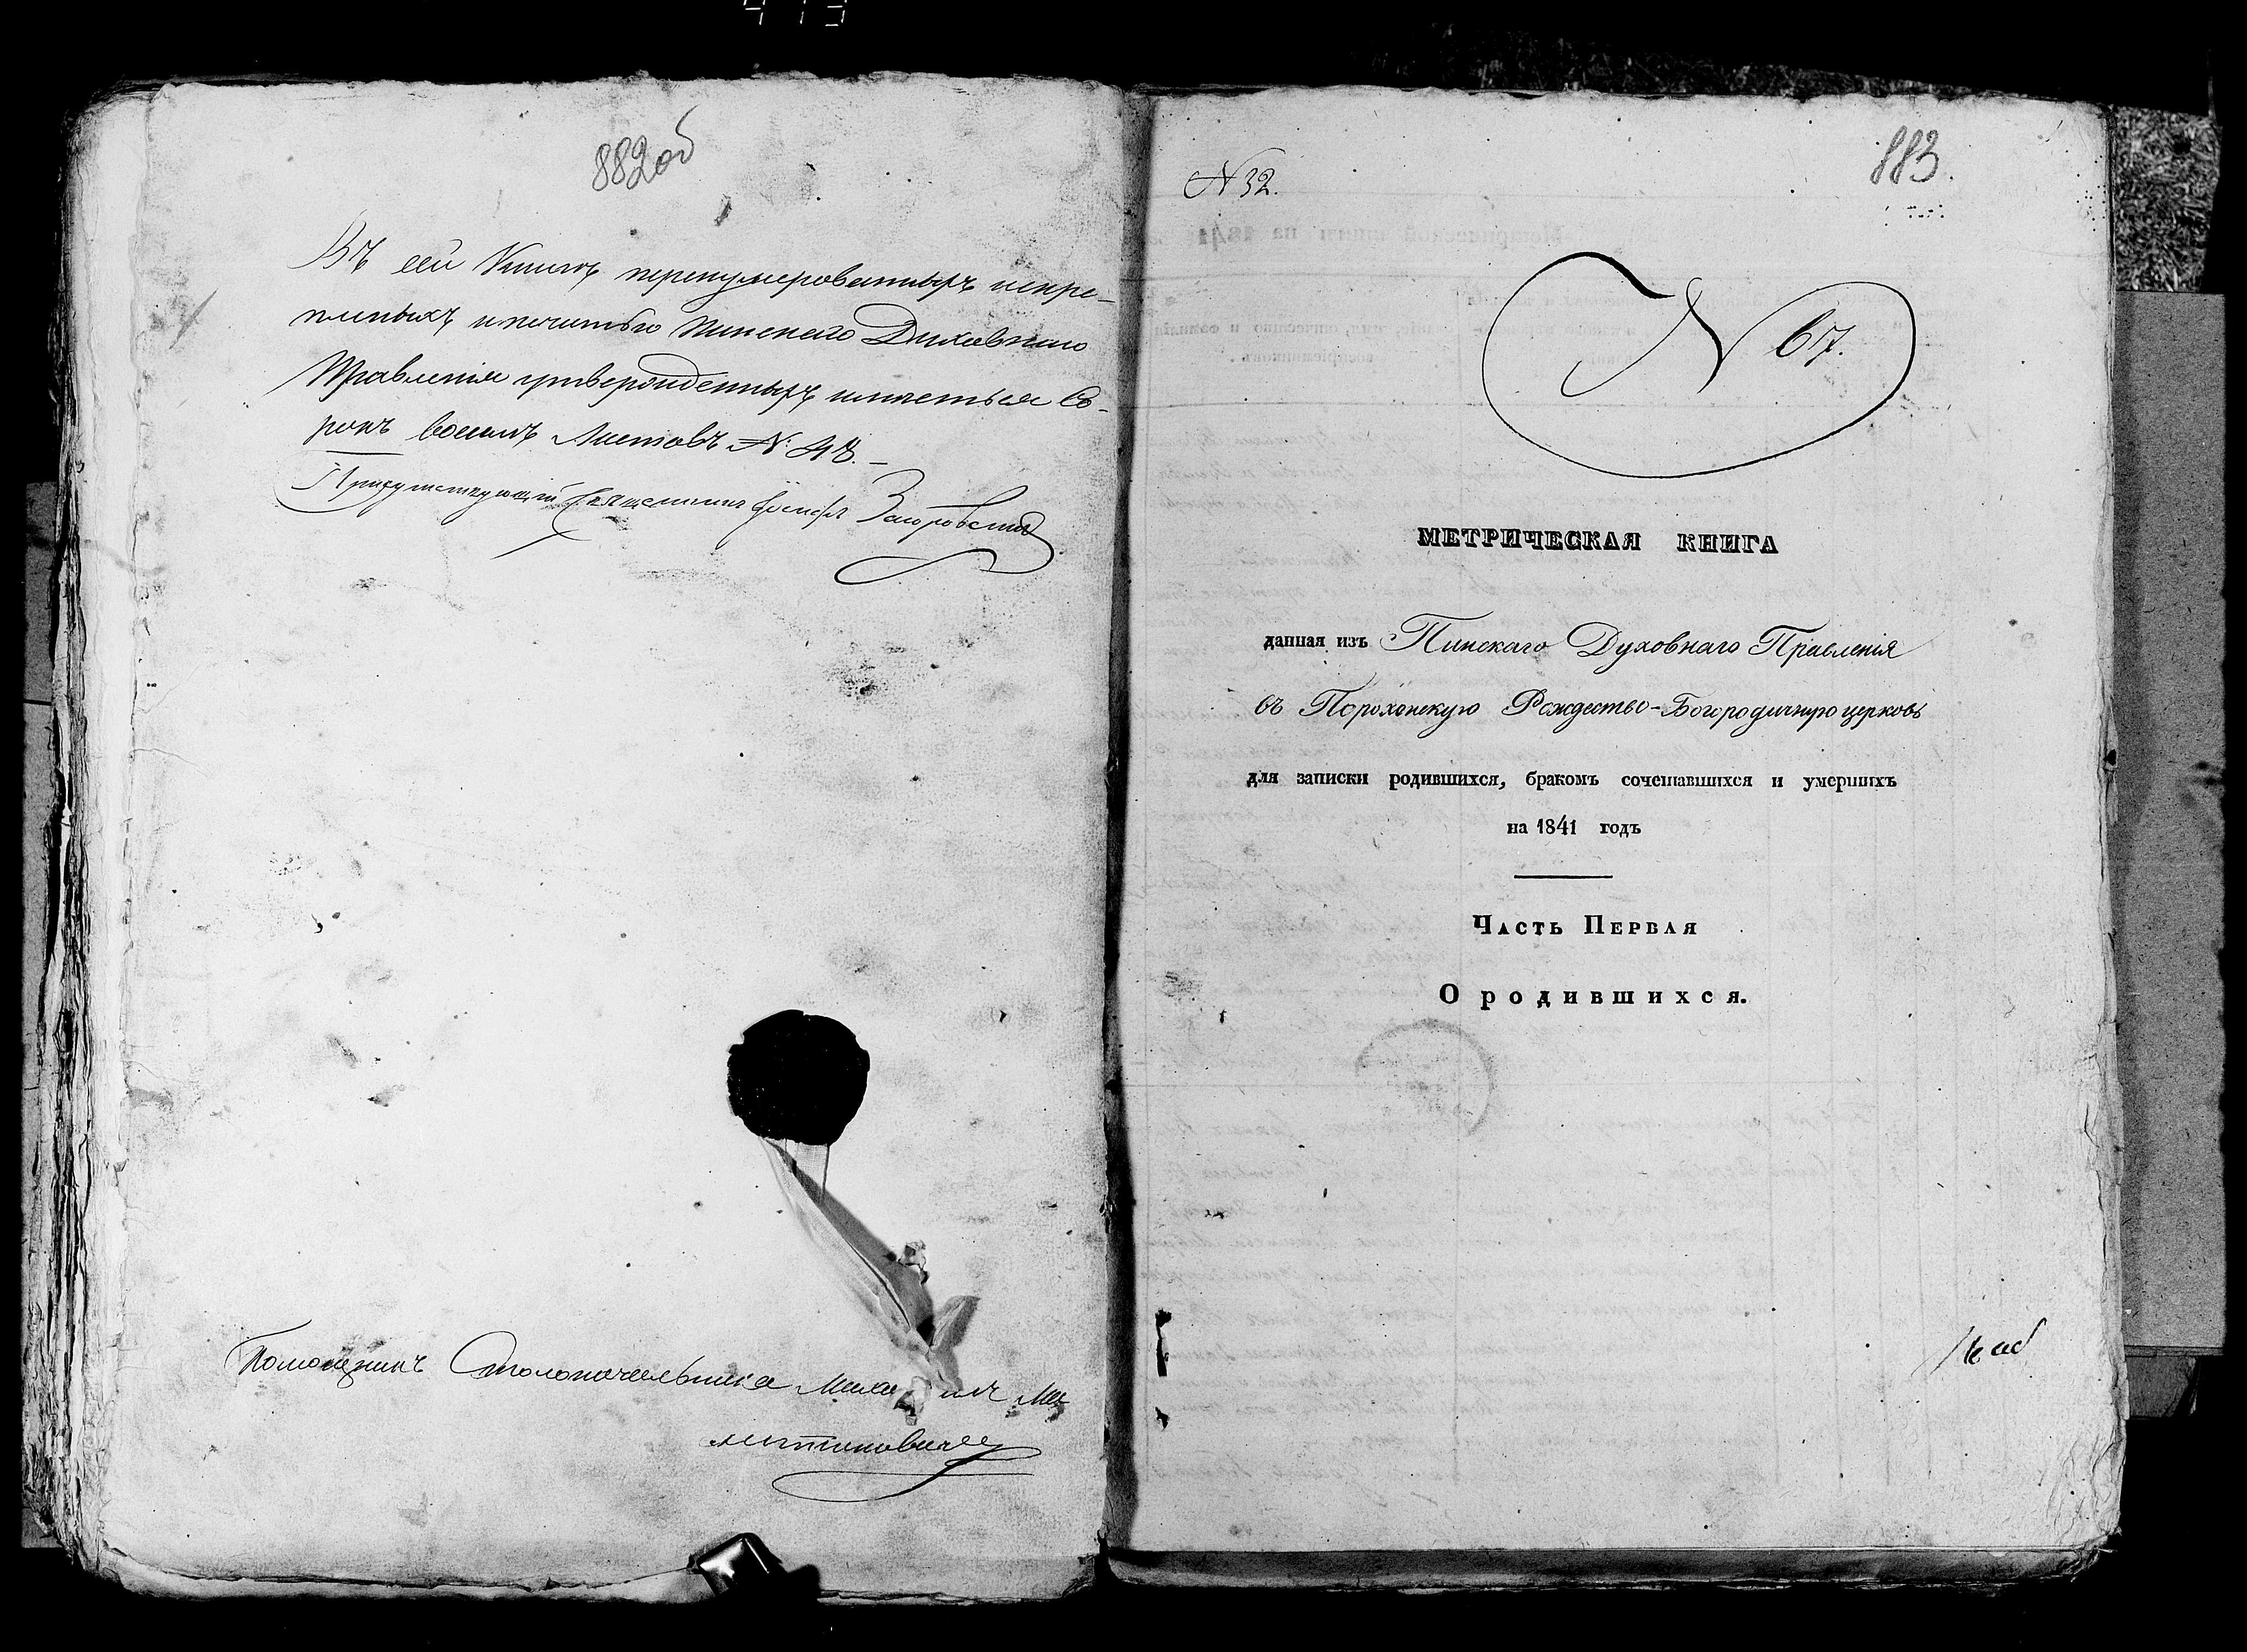 413
882об
Въ сей Книгѣ перенумерованныхъ искре-
пленыхъ ипечатью Пинскаго Духовнаго
Правленія утвержденныхъ имѣеться со-
рокъ восемъ Листовъ №: 48. –
Присутствующій Священникъ Іосифъ
Помощникъ Столоначальника Миха илъ
883.
N 32.
N 67.
МЕТРИЧЕСКАЯ КНИГА
данная изъ Пинскаго Духовнаго Правленія
въ Порохонскую Рождество-Богородичную церковь
для записки родившихся, бракомъ сочетавшихся и умершихъ
на 1841 годъ
Часть Первая
О родившихся.